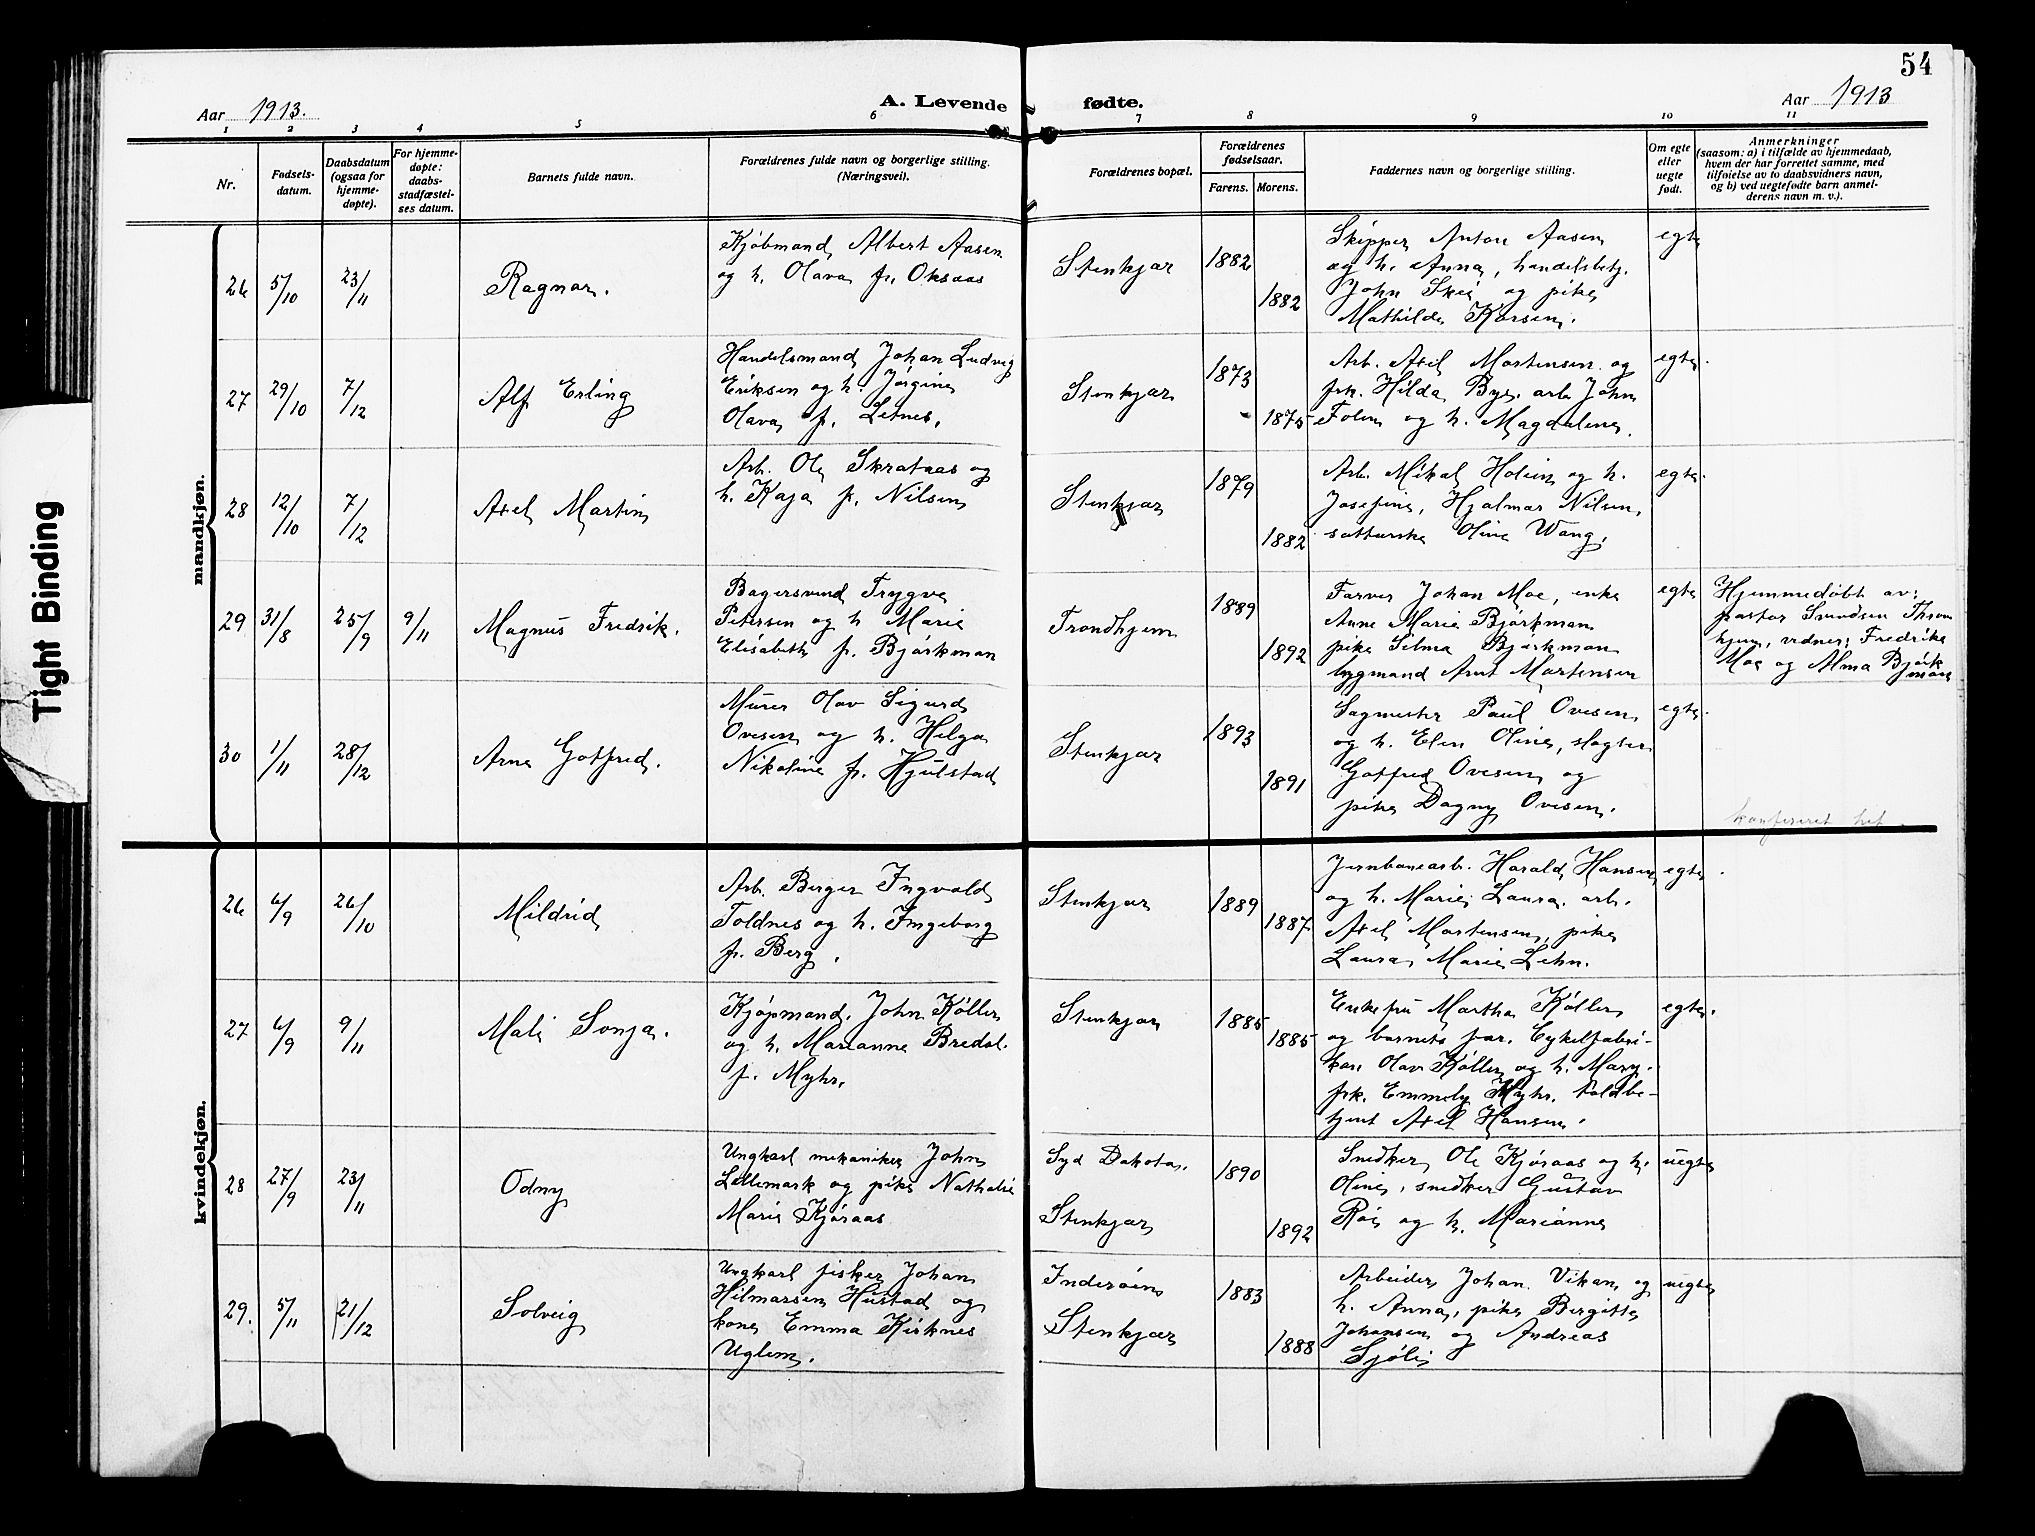 54
Aar 1913.
A. Levende fødte.
Aar 1913
1 2 3 4 5 6 7 8 9 10 11
Nr.
Fødsels-
datum.
Daabsdatum
(ogsaa for
hjemme-
døpte).
For hjemme-
døpte:
daabs-
stadfæstel-
ses datum.
Barnets fulde navn.
Forældrenes fulde navn og borgerlige stilling.
(Næringsvei).
Forældrenes bopæl.
Forældrenes
fødselsaar.
Farens. Morens.
Faddernes navn og borgerlige stilling.
Om egte
eller
uegte
født.
Anmerkninger
(saasom: a) i tilfælde av hjemmedaab,
hvem der har forrettet samme, med
tilføielse av to daabsvidners navn,
og b) ved uegtefødte barn anmel-
derens navn m. v.).
mandkjøn.
26 5/10 23/11
Ragnar.
Kjøbmand Albert Aasen
og h. Olava f. Oksaas
Stenkjær
1882
1882
Skipper Anton Aasen
og h. Anna, handelsbetj.
John Skei og pike
Mathilde Karsen.
egte
27 29/10 7/12
Alf Erling
Handelsmand Johan Ludvig
Eriksen og h. Jørgine
Olava f. Letnes.
Stenkjær
1873
1875
Arb. Axel Martensen og
frk. Hilda Bye. arb. John
Folin og h. Magdalene.
egte.
28 12/10 7/12
Axel Martin
Arb. Ole Skrataas og
h. Kaja f. Nilsen
Stenkjær
1879
1882
Arb. Mikal Holein og h.
Josefine, Hjalmar Nilsen,
Oline Wang.
egte.
29 31/8 25/9 9/11
Magnus Fredrik.
Bagersvend Trygve
Petersen og h. Marie
Elisabeth f. Bjørkman
Trondhjem
1889
1892
Farver Johan Moe, enke
Anne Marie Bjørkman
pike Selma Bjørkman
bygmand Arnt Martensen
egte
Hjemmedøbt av:
pastor Smedsen Thrond
hjem, vidner: Fredrike
Moe og Alma Bjørk
man
30 1/11 28/12
Arne Gotfred.
Murer Olav Sigurd
Ovesen og h. Helga
Nikoline f. Hjulstad
Stenkjær
1893
1891
Sagmester Paul Ovesen
og h. Elen Oline, slagter
Gotfred Ovesen og
pike Dagny Ovesen.
egte.
kvindekjøn.
26 6/9 26/10
Mildrid
Arb. Berger Ingvald
Toldnes og h. Ingeborg
f. Berg.
Stenkjær
1889
1887
Jernbanearb. Harald Hansen
og h. Marie Laura. arb.
Axel Martensen, pike
Laura Marie Lehn.
egte.
27 6/9 9/11
Mali Sonja.
Kjøpmand. John Køller
og h. Marianne Bredal.
f. Myhr.
Stenkjær
1885
1885
Enkefru Martha Køller
og barnets far. Cykelfabri-
kan Olav Køller og h. Mary.
frk. Emmely Myhr. toldbe-
tjent Axel Hansen.
egte.
28 27/9 23/11
Odny
Ungkarl mekaniker John
Lillemark og pike Nathalie
Marie Kjøraas
Syd Dakota.
Stenkjær
1890
1892
Snedker Ole Kjøraas og h.
Oline, snedker Gustav
Røe og h. Marianne
uegte
29. 5/11 21/12
Solveig
Ungkarl fisker Johan
Hilmarsen Hustad og
kone Emma Kirknes
Uglem.
Inderøen
Stenkjær
1883
1888
Arbeider Johan Vikan og
h. Anna, pike Bergitte
Johansen og Andreas
Sjøli
uegte
Tight Binding